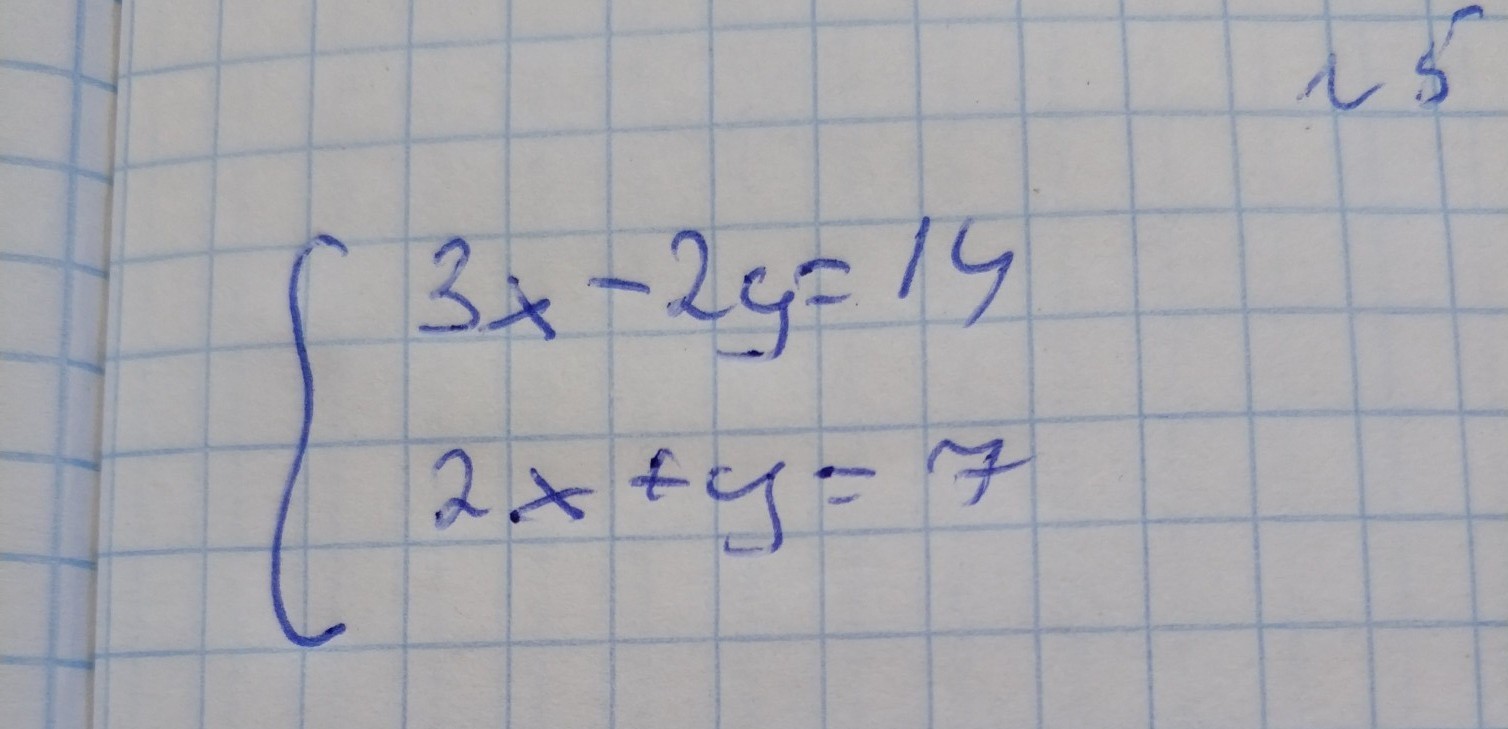 № 5
3x - 2y = 14
2x + y = 7